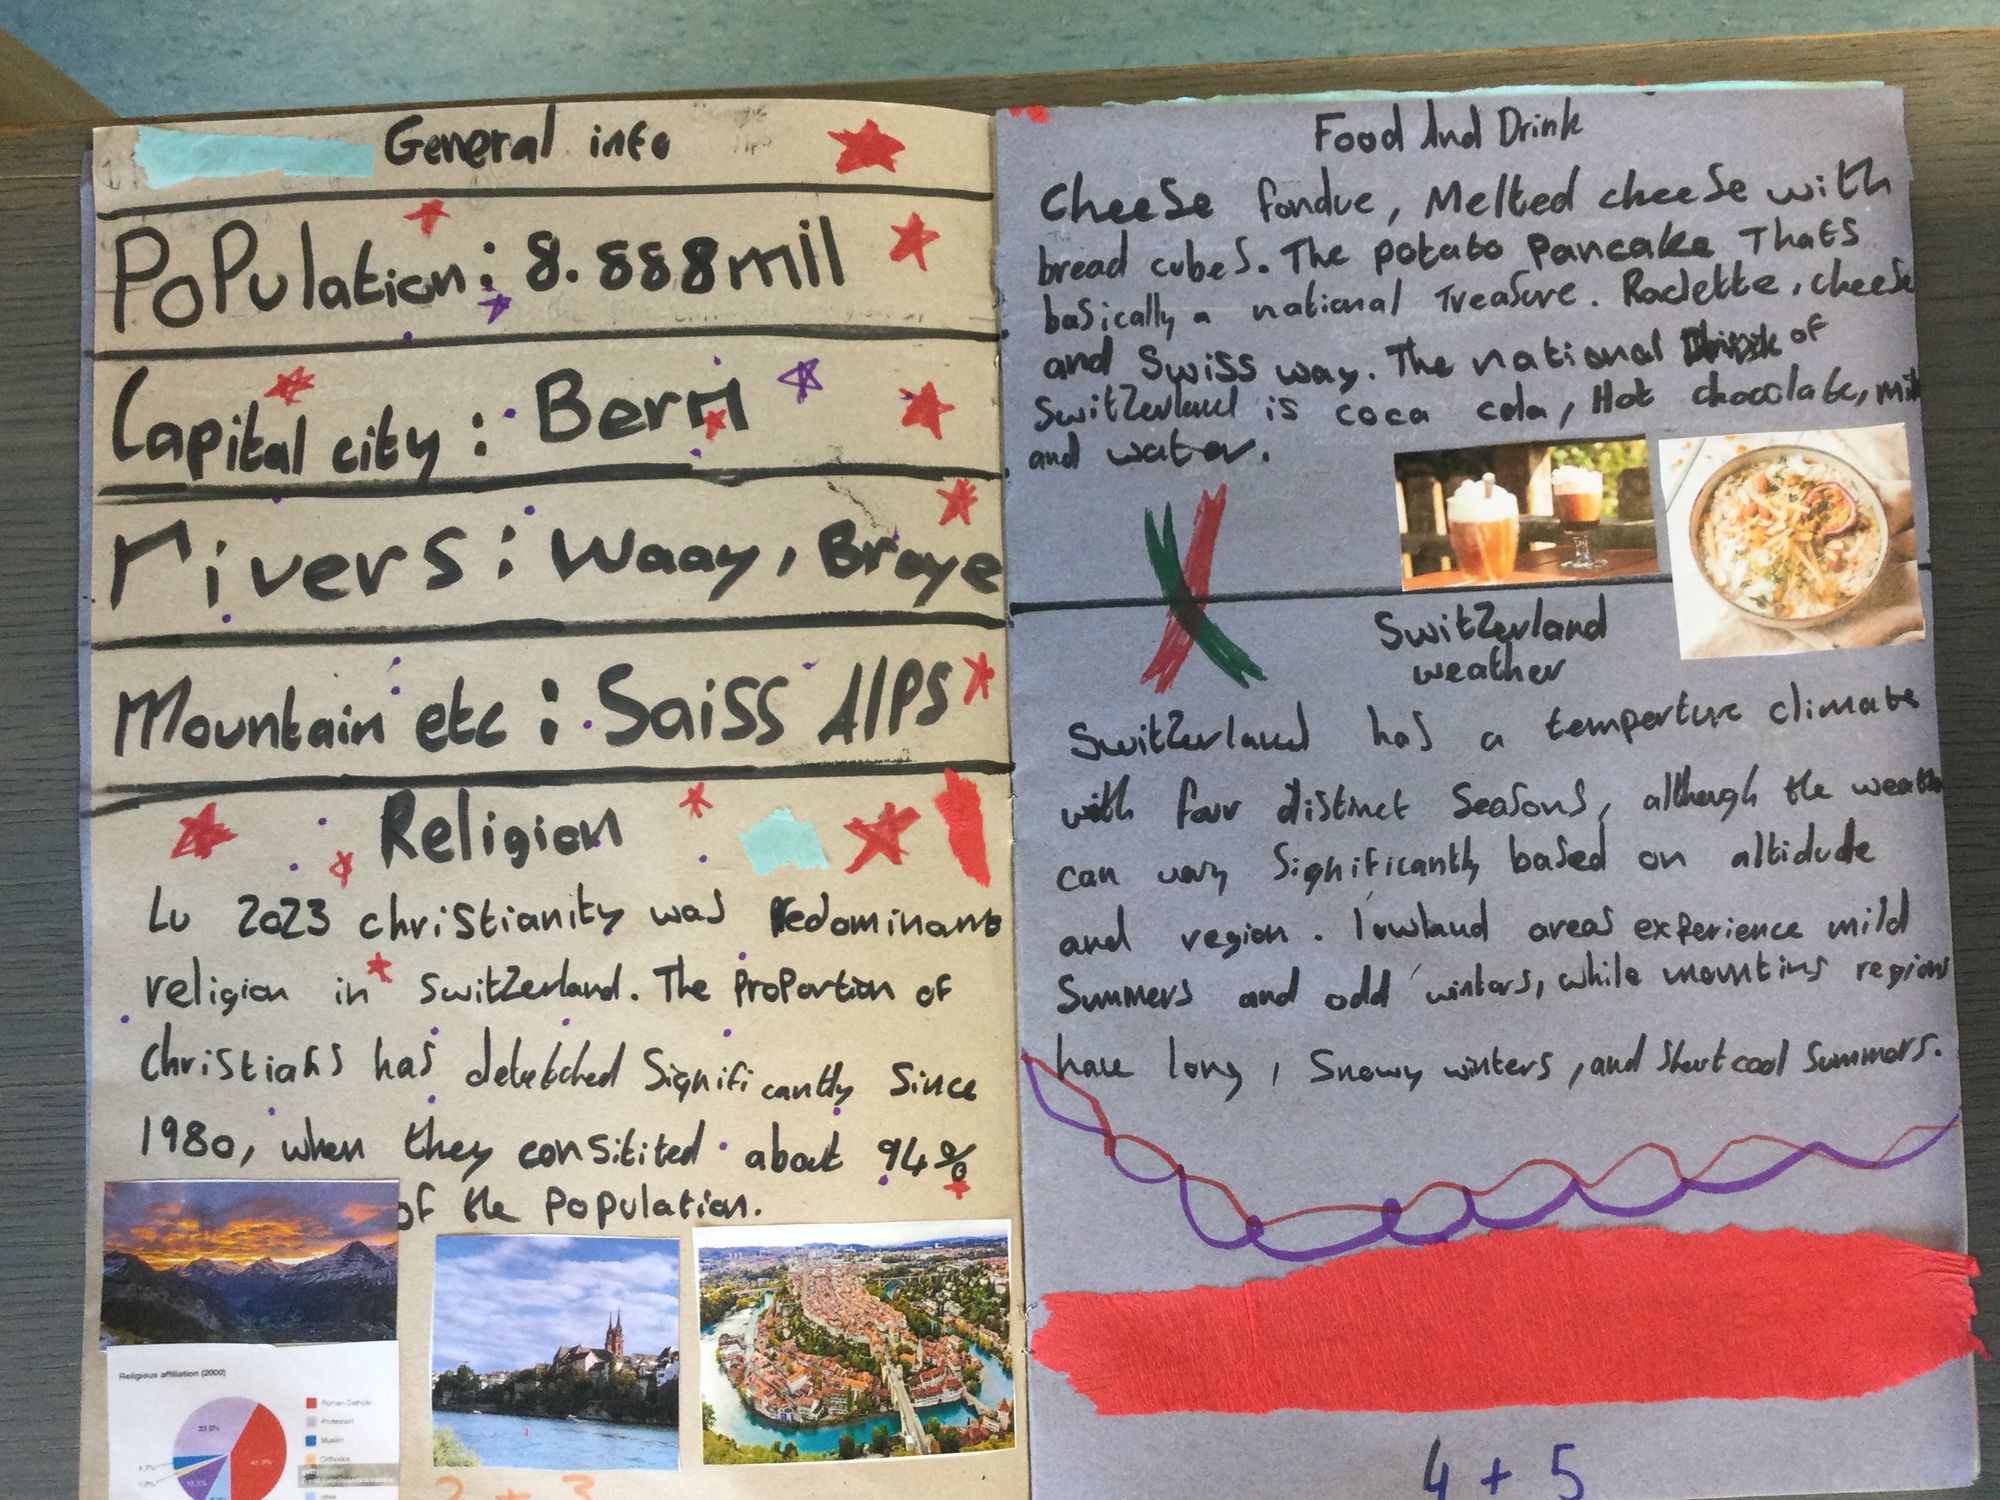 General info
Population: 8.888mil
Capital city: Bern
rivers: Waay, Broye
Mountain etc: Saiss Alps
Religion
Lu 2023 christianity was Redominant
religion in Switzerland. The Proportion of
Christians has detetched Significantly Since
1980, when they consitited about 94%
of the Population.
Religious affiliation (2000)
Roman Catholic
Protestant
Muslim
Orthodox
other
33.0%
41.8%
4.3%
1.8%
11.1%
2 + 3
Food And Drink
Cheese fondue, Melted cheese with
bread cubes. The potato pancake Thats
basically a national Treasure. Raclette, cheese
and Swiss way. The national Drink of
Switzerland is coca cola, Hot chocolate, milk
and water.
Switzerland
weather
Switzerland has a temperture climate
with four distinct Seasons, although the weath
can vary Significantly based on altidude
and region. lowland areas experience mild
Summers and odd winters, while mountins regions
have long, Snowy winters, and Short cool Summers.
4 + 5